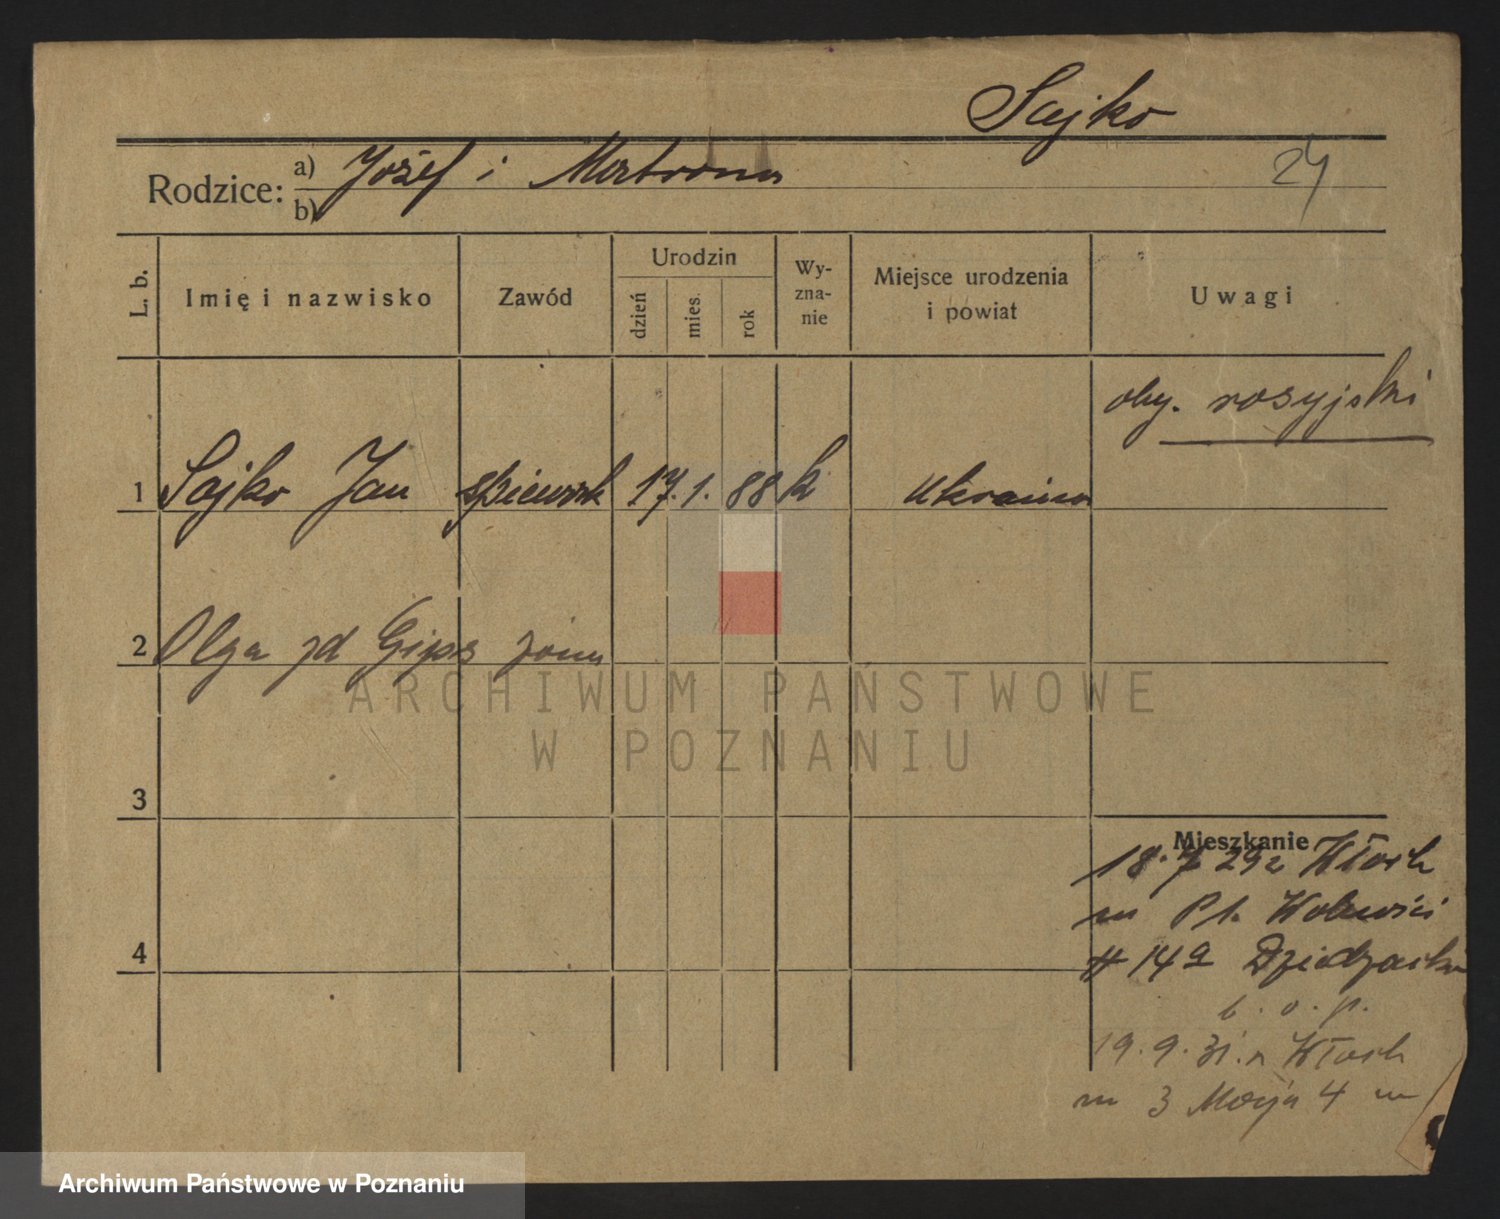 Sajko
Rodzice: a) Józef i Matrona 24
b)
L. b. Imię i nazwisko Zawód Urodzin dzień mies. rok Wy-zna-nie Miejsce urodzenia i powiat Uwagi
oby. rosyjski
1 Sajko Jan śpiewak 17. 1. 88 k Ukraina
2 Olga zd Gips żona
3
Mieszkanie
18. 7 29 z Włoch
m Pl. Wolności
# 14a Dziedzicka
b. o. p.
19. 9. 31. z Włoch
m 3 Maja 4 m
4
ARCHIWUM PAŃSTWOWE
W POZNANIU
Archiwum Państwowe w Poznaniu